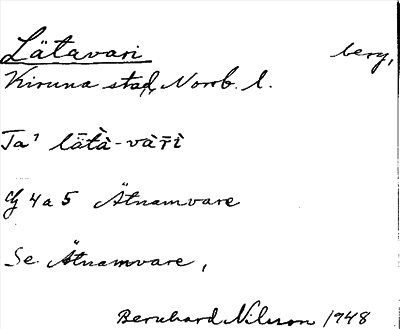 Lätavari berg,
Kiruna stad, Norrb. l.
Ta¹ lā̀tà-vàr̄ì
4 a 5 Ätnamvare
Se Ätnamvare,
Bernhard Nilsson 1948